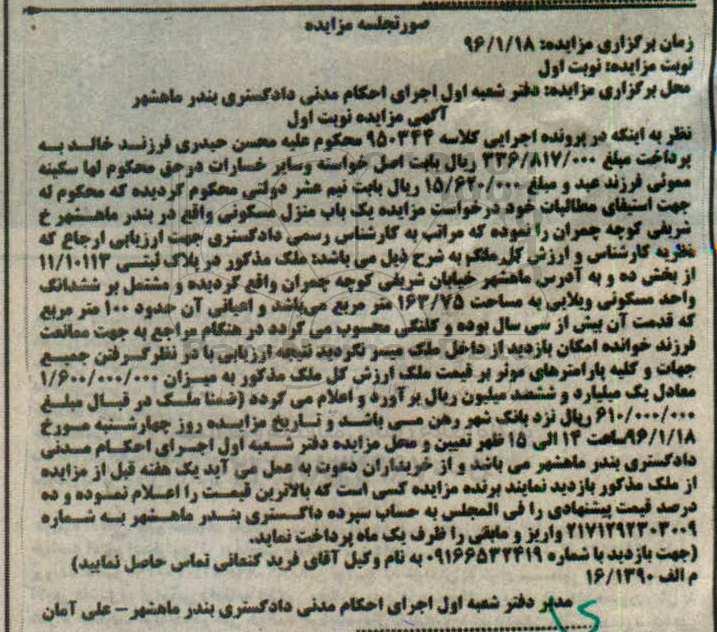 صورتجلسه مزایده
زمان برگزاری مزایده: ۹۶/۱/۱۸
نوبت مزایده: نوبت اول
محل برگزاری مزایده: دفتر شعبه اول اجرای احکام مدنی دادگستری بندر ماهشهر
آگهی مزایده نوبت اول
نظر به اینکه در پرونده اجرایی کلاسه ۹۵۰۳۴۴ محکوم علیه محسن حیدری فرزند خالد به
پرداخت مبلغ ۳۳۶/۸۱۷/۰۰۰ ریال بابت اصل خواسته وسایر خسارات درحق محکوم لها سکینه
مموئی فرزند عبد و مبلغ ۱۵/۶۲۰/۰۰۰ ریال بابت نیم عشر دولتی محکوم گردیده که محکوم له
جهت استیفای مطالبات خود درخواست مزایده یک باب منزل مسکونی واقع در بندر ماهشهر خ
شریفی کوچه چمران را نموده که مراتب به کارشناس رسمی دادگستری جهت ارزیابی ارجاع که
نظریه کارشناس و ارزش کل ملک به شرح ذیل می باشد: ملک مذکور در پلاک ثبتی ۱۱/۱۰۱۱۳
از بخش ده و به آدرس ماهشهر خیابان شریفی کوچه چمران واقع گردیده و مشتمل بر ششدانگ
واحد مسکونی ویلایی به مساحت ۱۶۳/۷۵ متر مربع میباشد و اعیانی آن حدود ۱۰۰ متر مربع
که قدمت آن بیش از سی سال بوده و کلنگی محسوب می گردد در هنگام مراجع به جهت ممانعت
فرزند خوانده امکان بازدید از داخل ملک میسر نگردید نتیجه ارزیابی با در نظرگرفتن جمیع
جهات و کلیه پارامترهای موثر بر قیمت ملک ارزش کل ملک مذکور به میزان ۱/۶۰۰/۰۰۰/۰۰۰
معادل یک میلیارد و ششصد میلیون ریال برآورد و اعلام می گردد (ضمنا ملک در قبال مبلغ
۶۱۰/۰۰۰/۰۰۰ ریال نزد بانک شهر رهن می باشد و تاریخ مزایده روز چهارشنبه مورخ
۹۶/۱/۱۸ساعت ۱۴ الی ۱۵ ظهر تعیین و محل مزایده دفتر شعبه اول اجرای احکام مدنی
دادگستری بندر ماهشهر می باشد و از خریداران دعوت به عمل می آید یک هفته قبل از مزایده
از ملک مذکور بازدید نمایند برنده مزایده کسی است که بالاترین قیمت را اعلام نموده و ده
درصد قیمت پیشنهادی را فی المجلس به حساب سپرده داگستری بندر ماهشهر به شماره
۲۱۷۱۲۹۲۲۰۳۰۰۹ واریز و مابقی را ظرف یک ماه پرداخت نماید.
(جهت بازدید با شماره ۰۹۱۶۶۵۳۲۴۱۹ به نام وکیل آقای فرید کنعانی تماس حاصل نمایید)
م الف ۱۶/۱۳۹۰
مدیر دفتر شعبه اول اجرای احکام مدنی دادگستری بندر ماهشهر – علی آمان